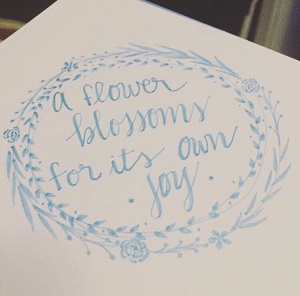 a flower
blossoms
for its own
· joy ·